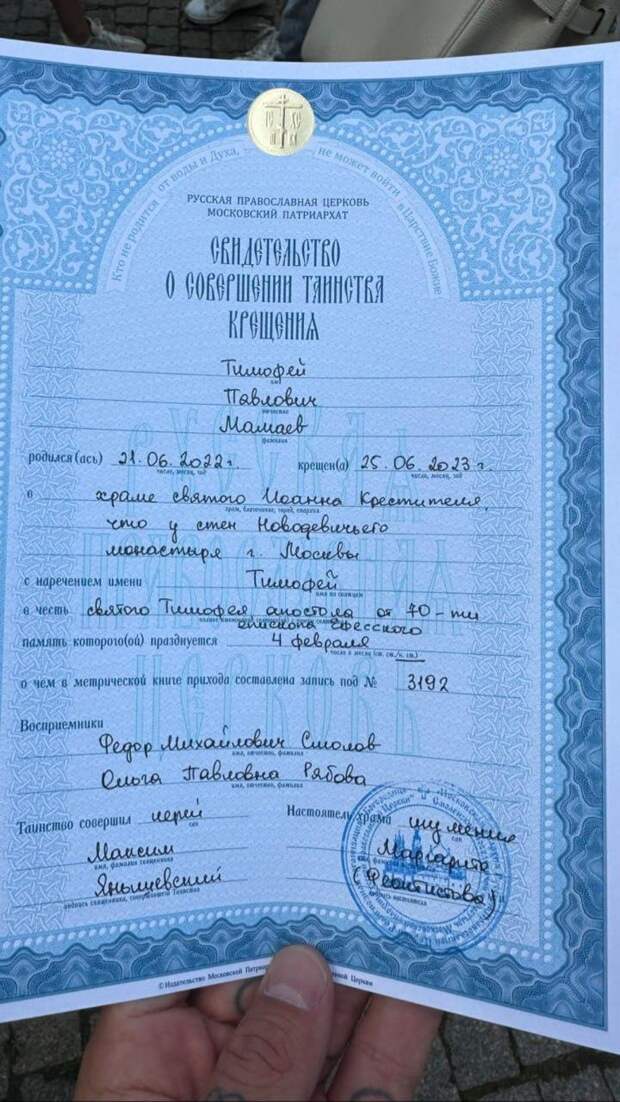 Кто не родится от воды и Духа, не может войти в Царствие Божие
РУССКАЯ ПРАВОСЛАВНАЯ ЦЕРКОВЬ
МОСКОВСКИЙ ПАТРИАРХАТ
СВИДЕТЕЛЬСТВО
О СОВЕРШЕНИИ ТАИНСТВА
КРЕЩЕНИЯ
Тимофей
имя
Павлович
отчество
Мамаев
фамилия
родился(ась) 21.06.2022 г. крещен(а) 25.06.2023 г.
число, месяц, год число, месяц, год
в храме святого Иоанна Крестителя,
что у стен Новодевичьего
монастыря г. Москвы
с наречением имени Тимофей
в честь святого Тимофея, апостола от 70-ти
епископа Ефесского
память которого(ой) празднуется 4 февраля
число и месяц (ст. ст./н. ст.)
о чем в метрической книге прихода составлена запись под № 3192
Восприемники
Федор Михайлович Смолов
имя, отчество, фамилия
Ольга Павловна Рябова
имя, отчество, фамилия
Таинство совершил иерей Настоятель храма игумения
сан сан
Максим Маргарита
имя, фамилия священника
Янышевский (Феоктистова)
подпись священника, совершившего Таинство
© Издательство Московской